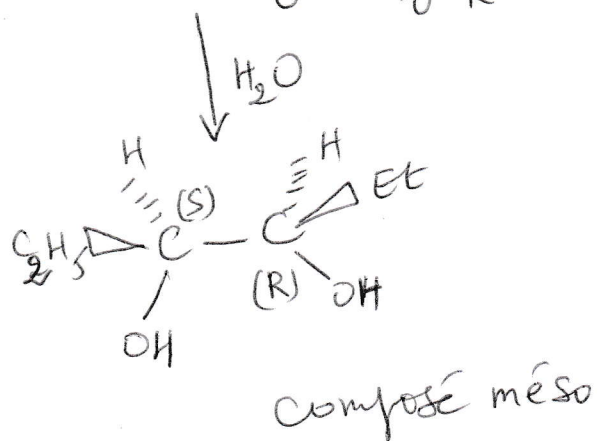 H₂O
H H
(S) Et
C₂H₅ C C
(R) OH
OH
composé méso